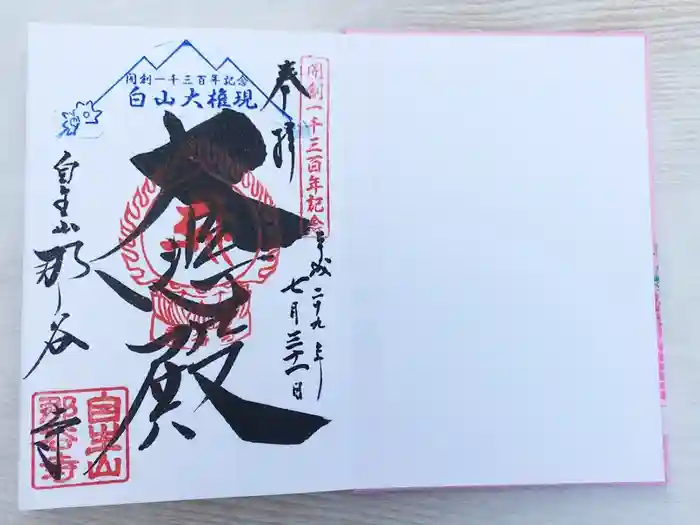 開創一千三百年記念
白山大権現
奉拝
開創一千三百年記念
平成二十九年
七月三十一日
大悲殿
自生山那谷寺
自生山
那谷寺